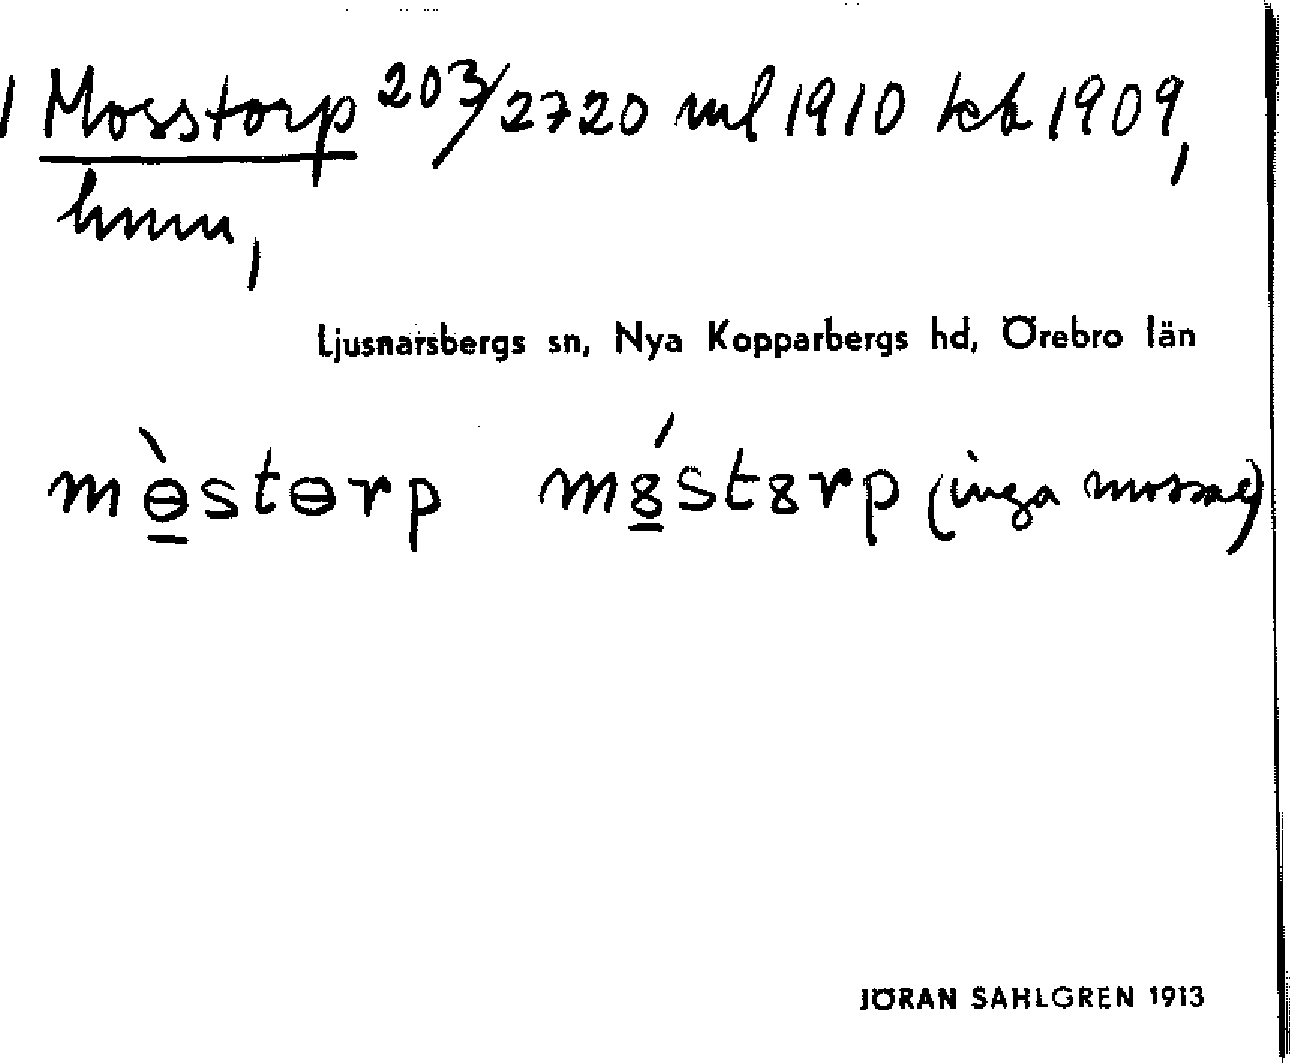 Mosstorp 203/2720 ml 1910 kb 1909,
hmn,
Ljusnarsbergs sn, Nya Kopparbergs hd, Örebro län
mɵ̀stɵrp mȣ́stȣrp (inga mossar)
JÖRAN SAHLGREN 1913